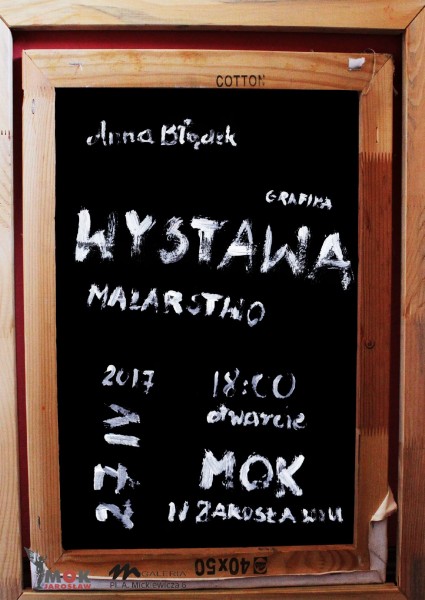 COTTON
Anna Błądek
GRAFIKA
WYSTAWA
MALARSTWO
2017
27 IV
18:00
otwarcie
MOK
W JAROSŁAWIU
40x50
MOK
JAROSŁAW
GALERIA
PL. A. MICKIEWICZA 6